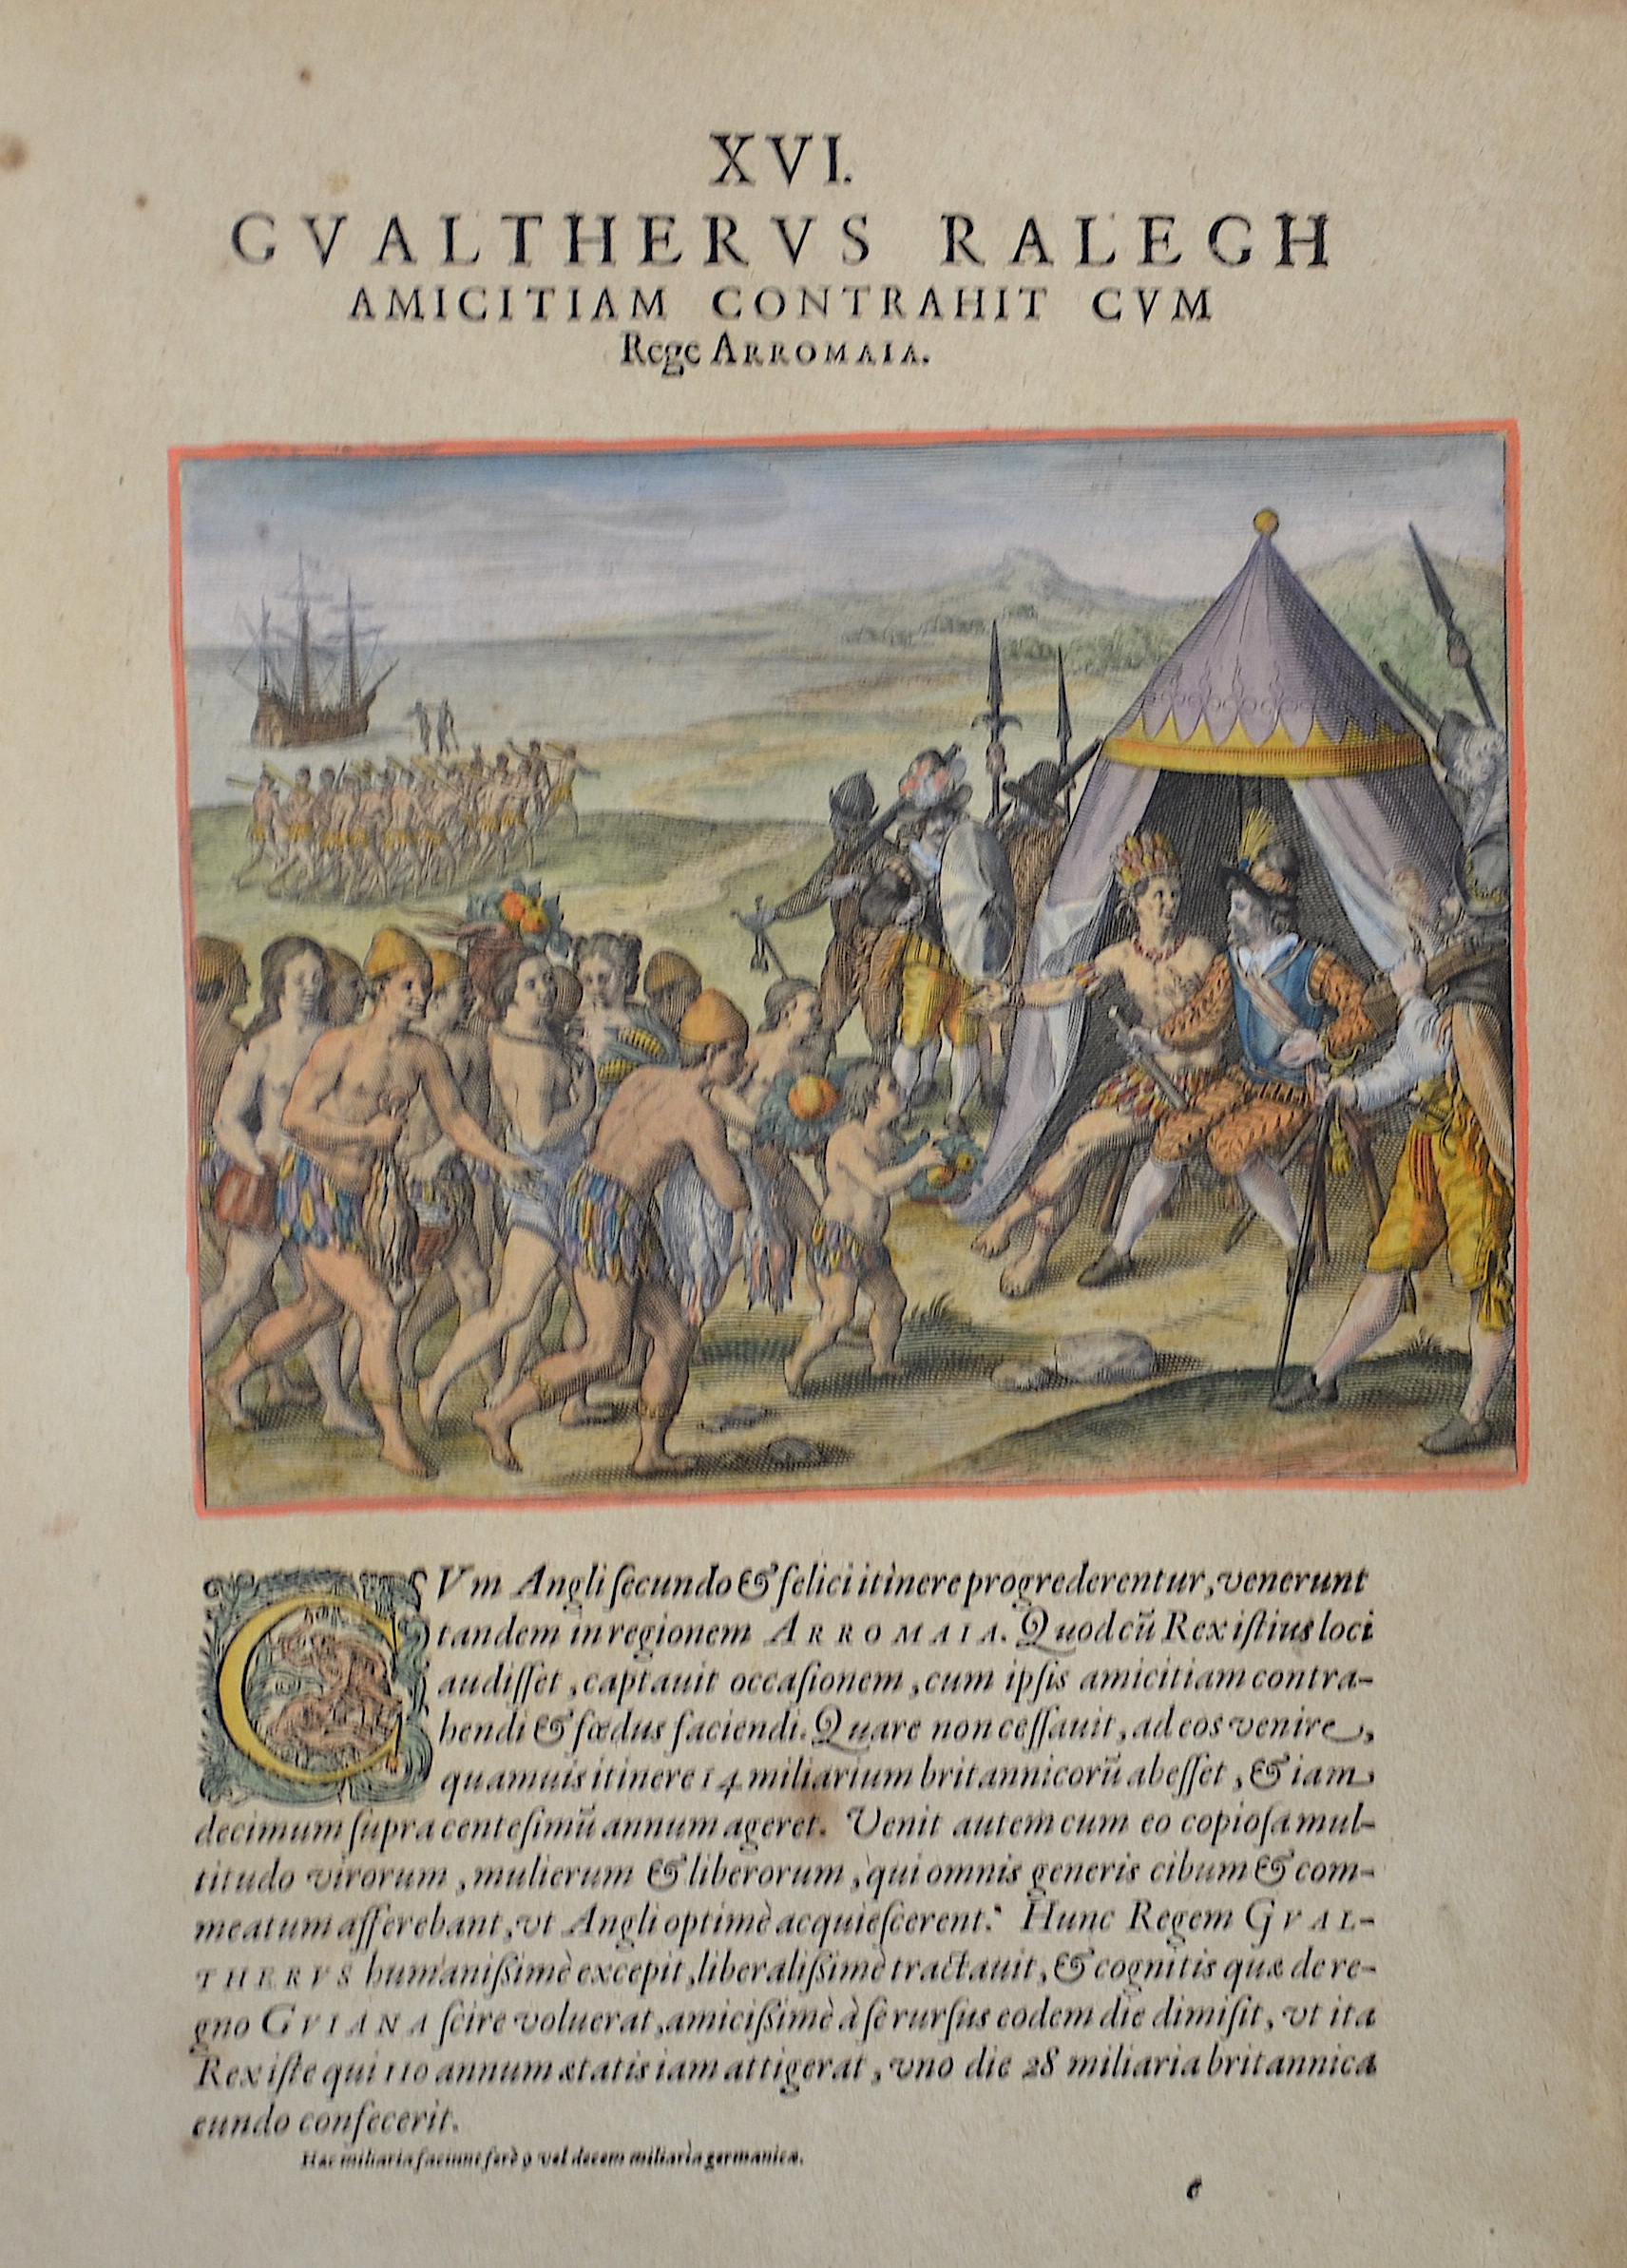 XVI.
GVALTHERVS RALEGH
AMICITIAM CONTRAHIT CVM
Rege ARROMAIA.
CVm Angli ſecundo & felici itinere progrederentur, venerunt
tandem in regionem ARROMAIA. Quod cũ Rex iſtius loci
audiſſet, captauit occaſionem, cum ipſis amicitiam contra-
hendi & fœdus faciendi. Quare non ceſſauit, ad eos venire,
quamuis itinere 14 miliarium britannicorũ abeſſet, & iam
decimum ſupra centeſimũ annum ageret. Venit autem cum eo copioſa mul-
titudo virorum, mulierum & liberorum, qui omnis generis cibum & com-
meatum afferebant, vt Angli optimè acquieſcerent. Hunc Regem GVAL-
THERVS humanißimè excepit, liberalißimè tractauit, & cognitis quæ de re-
gno GVIANA ſcire voluerat, amicißimè à ſe rurſus eodem die dimiſit, vt ita
Rex iſte qui 110 annum ætatis iam attigerat, vno die 28 miliaria britannica
eundo confecerit.
Hæc miliaria faciunt ferè 9 vel decem miliaria germanica.
c